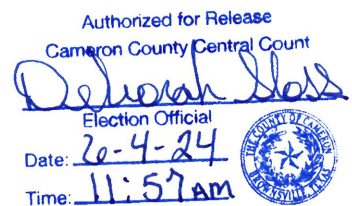 Authorized for Release
Cameron County Central Count
Deborah
Election Official
Date: 6-4-24
Time: 11:57 AM
THE COUNTY OF CAMERON
BROWNSVILLE, TEXAS